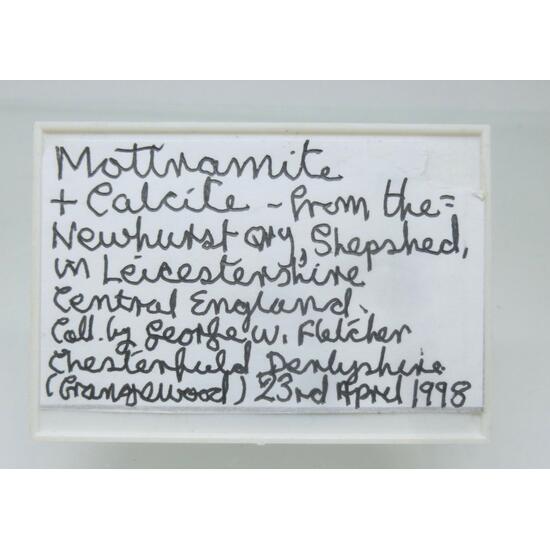 Mottramite
+ Calcite - from the =
Newhurst Qry, Shepshed,
in Leicestershire
Central England.
Coll. by George W. Fletcher
Chesterfield Derbyshire
(Grangewood) 23rd April 1998